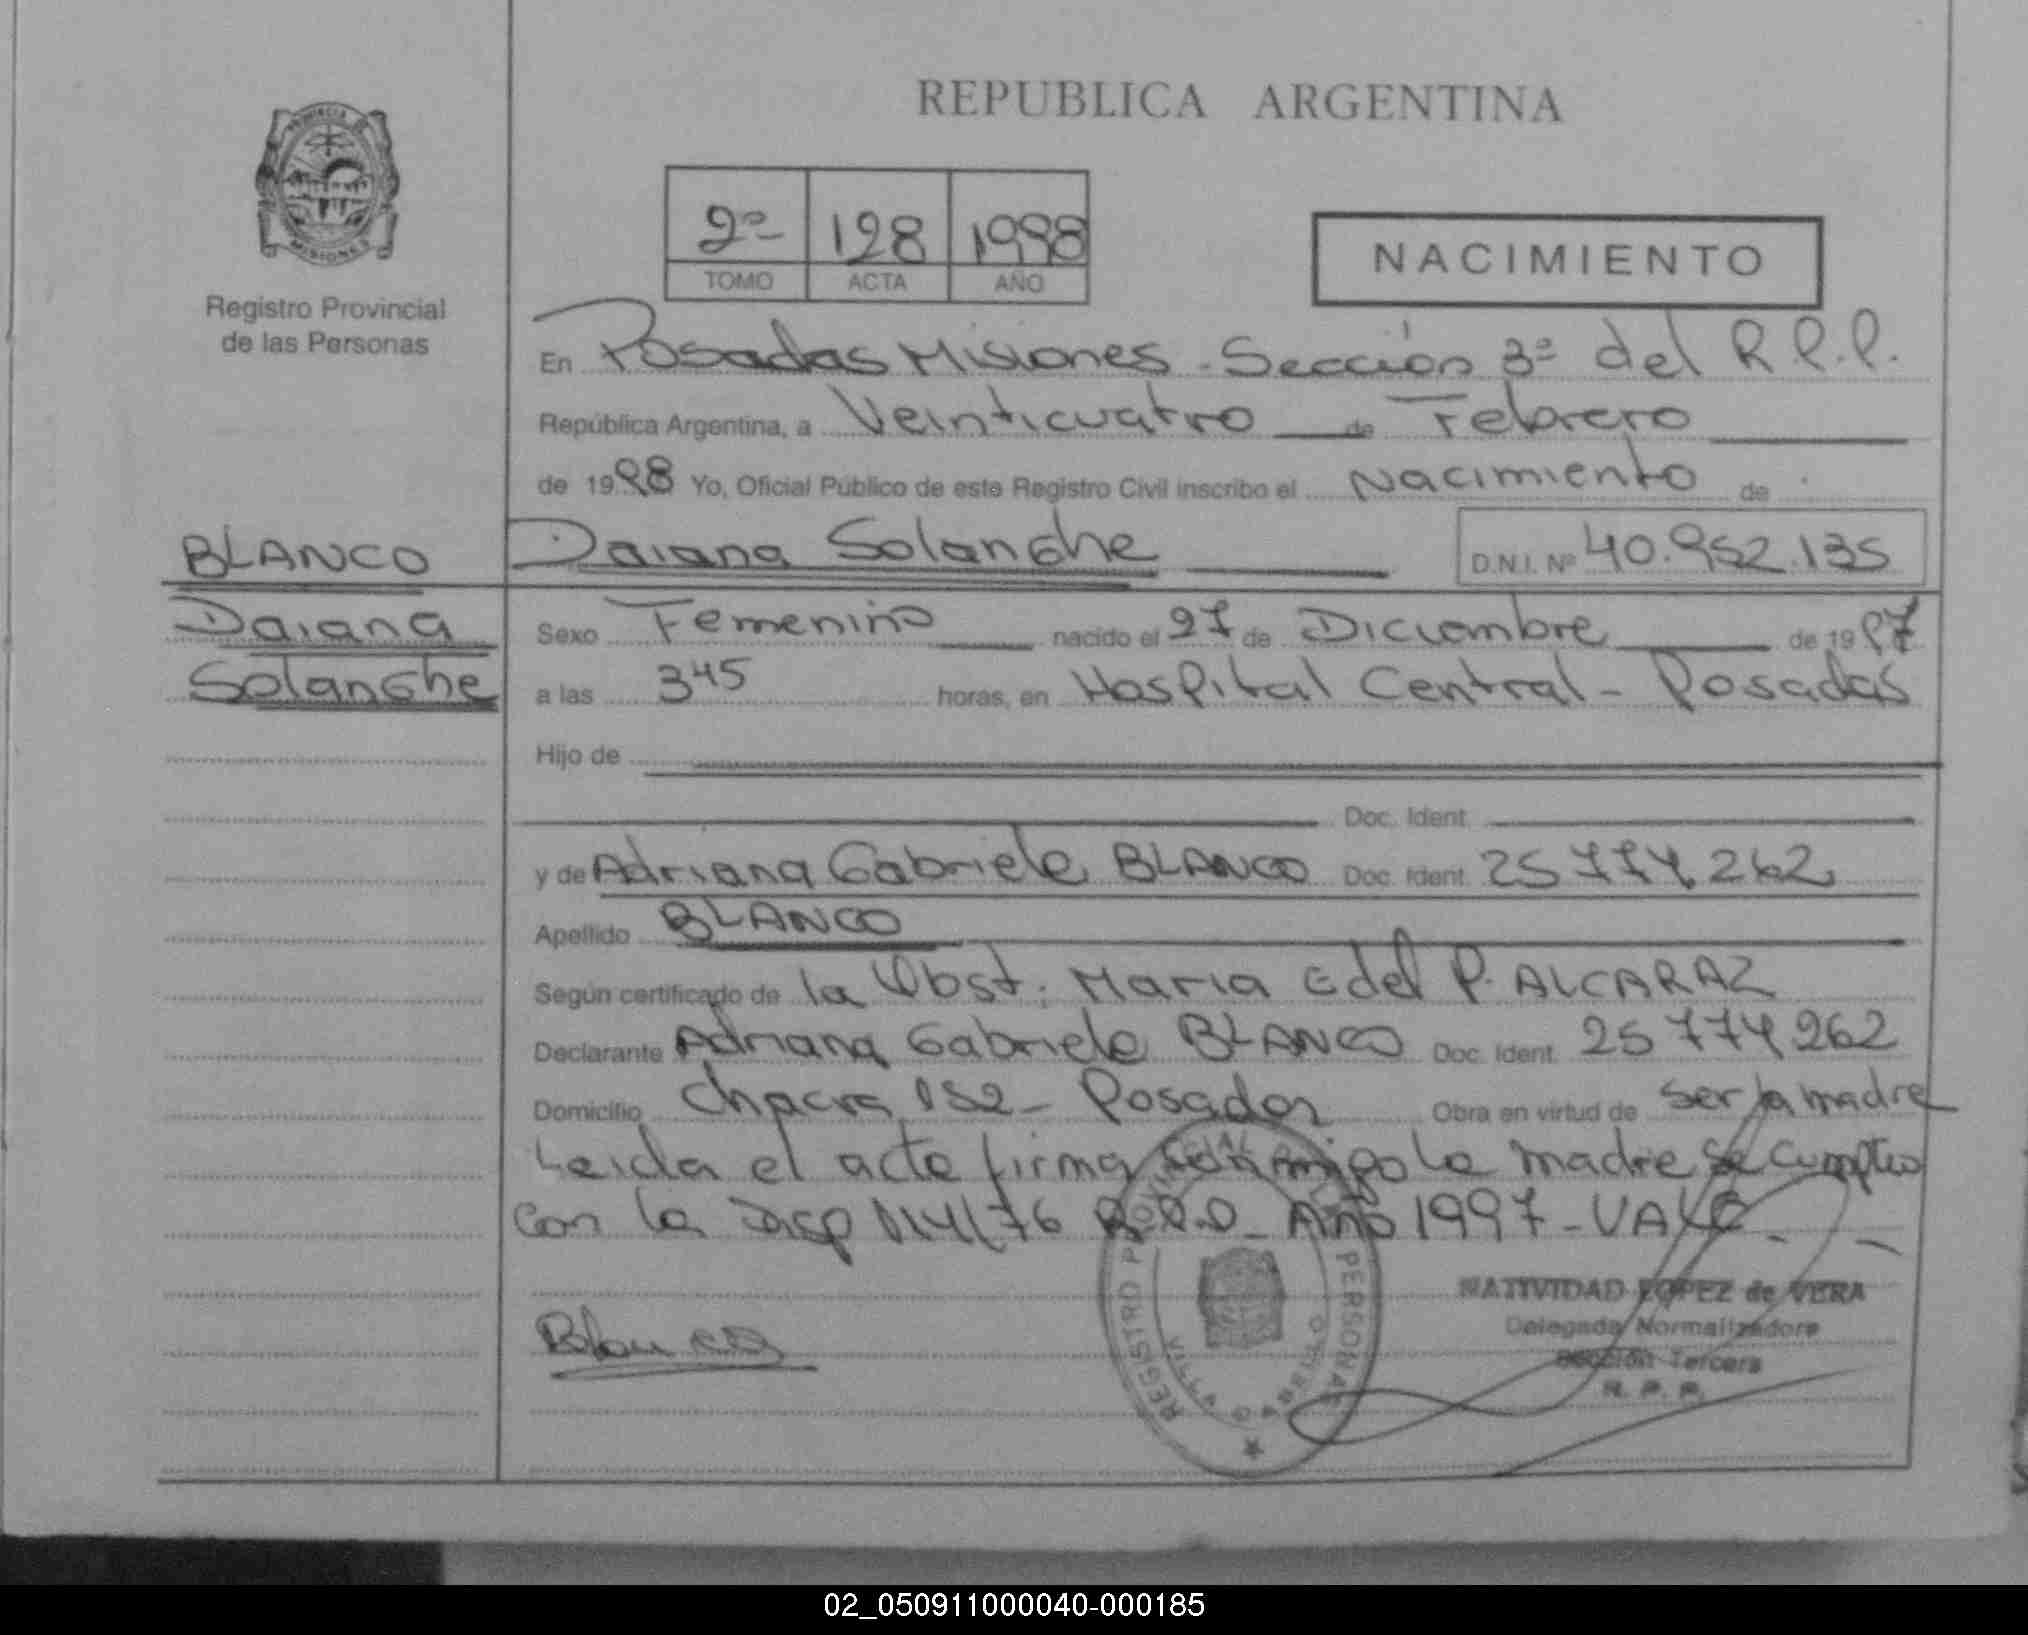 REPUBLICA ARGENTINA
PROVINCIA DE
MISIONES
Registro Provincial
de las Personas
2º 128 1998
TOMO ACTA AÑO
NACIMIENTO
En Posadas Misiones - Sección 3ª del R.P.P.
República Argentina, a Veinticuatro de Febrero
de 1998 Yo, Oficial Público de este Registro Civil inscribo el Nacimiento de
BLANCO
Daiana
Solanghe
Daiana Solanghe D.N.I. Nº 40.952.135
Sexo Femenino nacido el 27 de Diciembre de 1997
a las 3 45 horas, en Hospital Central - Posadas
Hijo de
Doc. Ident.
y de Adriana Gabriela BLANCO Doc. Ident. 25774262
Apellido BLANCO
Según certificado de la Obst. Maria Edel P. ALCARAZ
Declarante Adriana Gabriela BLANCO Doc. Ident. 25774262
Domicilio Chacra 152 - Posadas Obra en virtud de ser la madre
Leida el acta firma conmigo la madre se cumplio
con la Disp Año 1997 - VALE -
Blanco
REGISTRO PROVINCIAL PERSONAS
NATIVIDAD LOPEZ de VERA
Delegada Normalizadora
Sección Tercera
R. P. P.
02_050911000040-000185